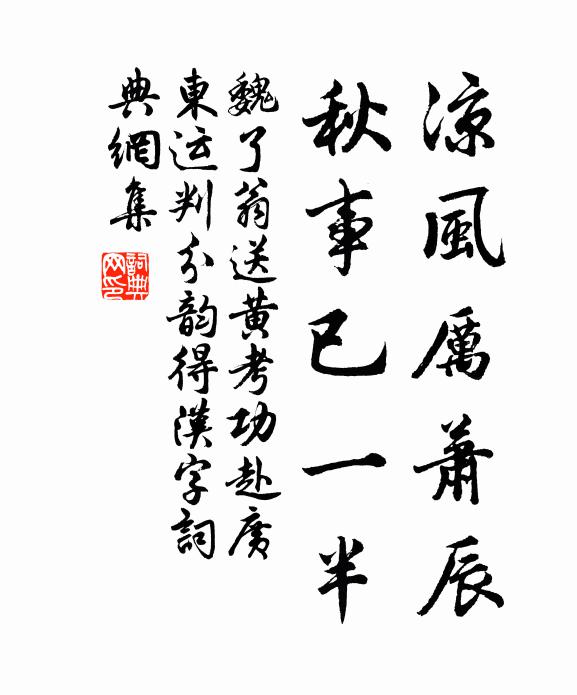 凉風厲蕭辰
秋事已一半
魏了翁送黄考功赴廣
東运判分韵得漢字詞
典網集
詞典网印